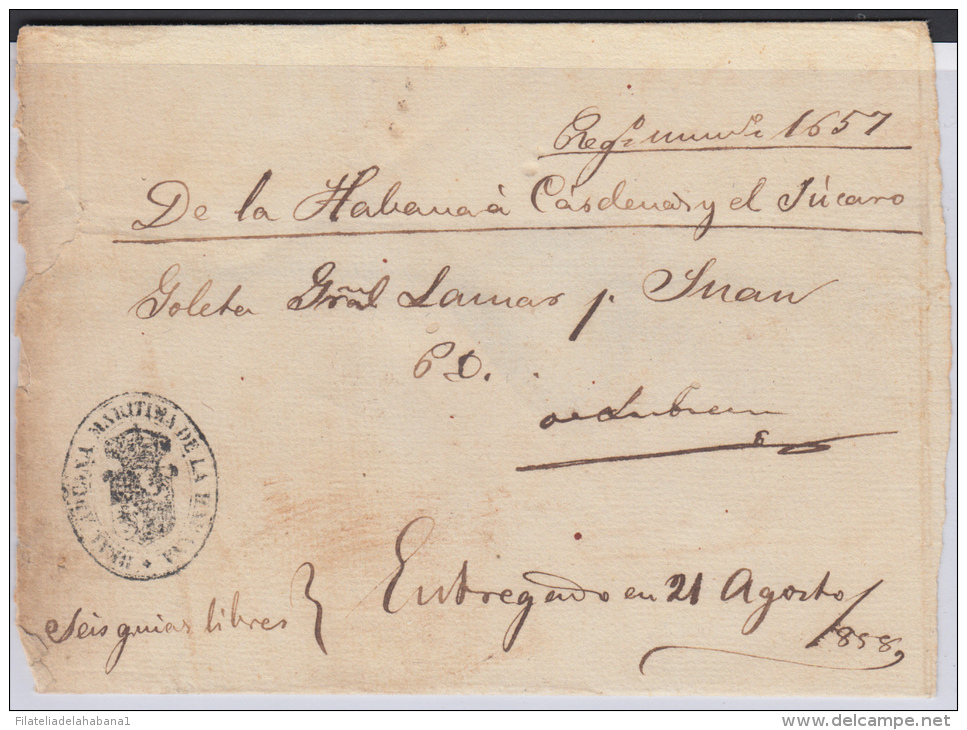 1657
De la Habana à Cárdenas y el Júcaro
Goleta Gral Lamar p. Juan
P D.
REAL ADUANA MARITIMA DE LA HABANA
Entregado en 21 Agosto
1858,
Seis guias libres
Filateliadelahabana1
delcampe.net